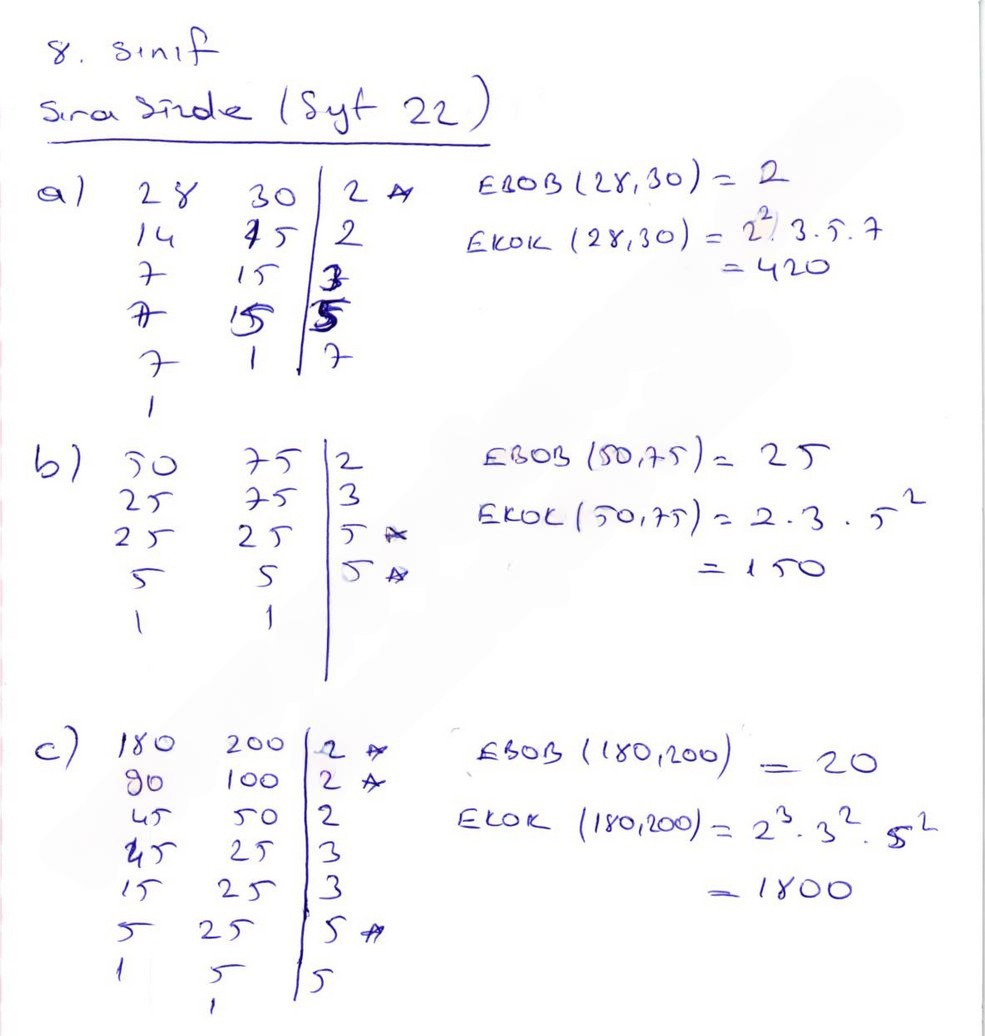 8. sınıf
Sıra Sizde (Syf 22)
a) 28 30 | 2 *
14 15 | 2
7 15 | 3
7 15 | 5
7 1 | 7
1
EBOB (28,30) = 2
EKOK (28,30) = 2². 3.5.7
= 420
b) 50 75 | 2
25 75 | 3
25 25 | 5 *
5 5 | 5 *
1 1
EBOB (50,75) = 25
EKOK (50,75) = 2.3.5²
= 150
c) 180 200 | 2 *
90 100 | 2 *
45 50 | 2
45 25 | 3
15 25 | 3
5 25 | 5 *
1 5 | 5
1
EBOB (180,200) = 20
EKOK (180,200) = 2³. 3². 5²
= 1800